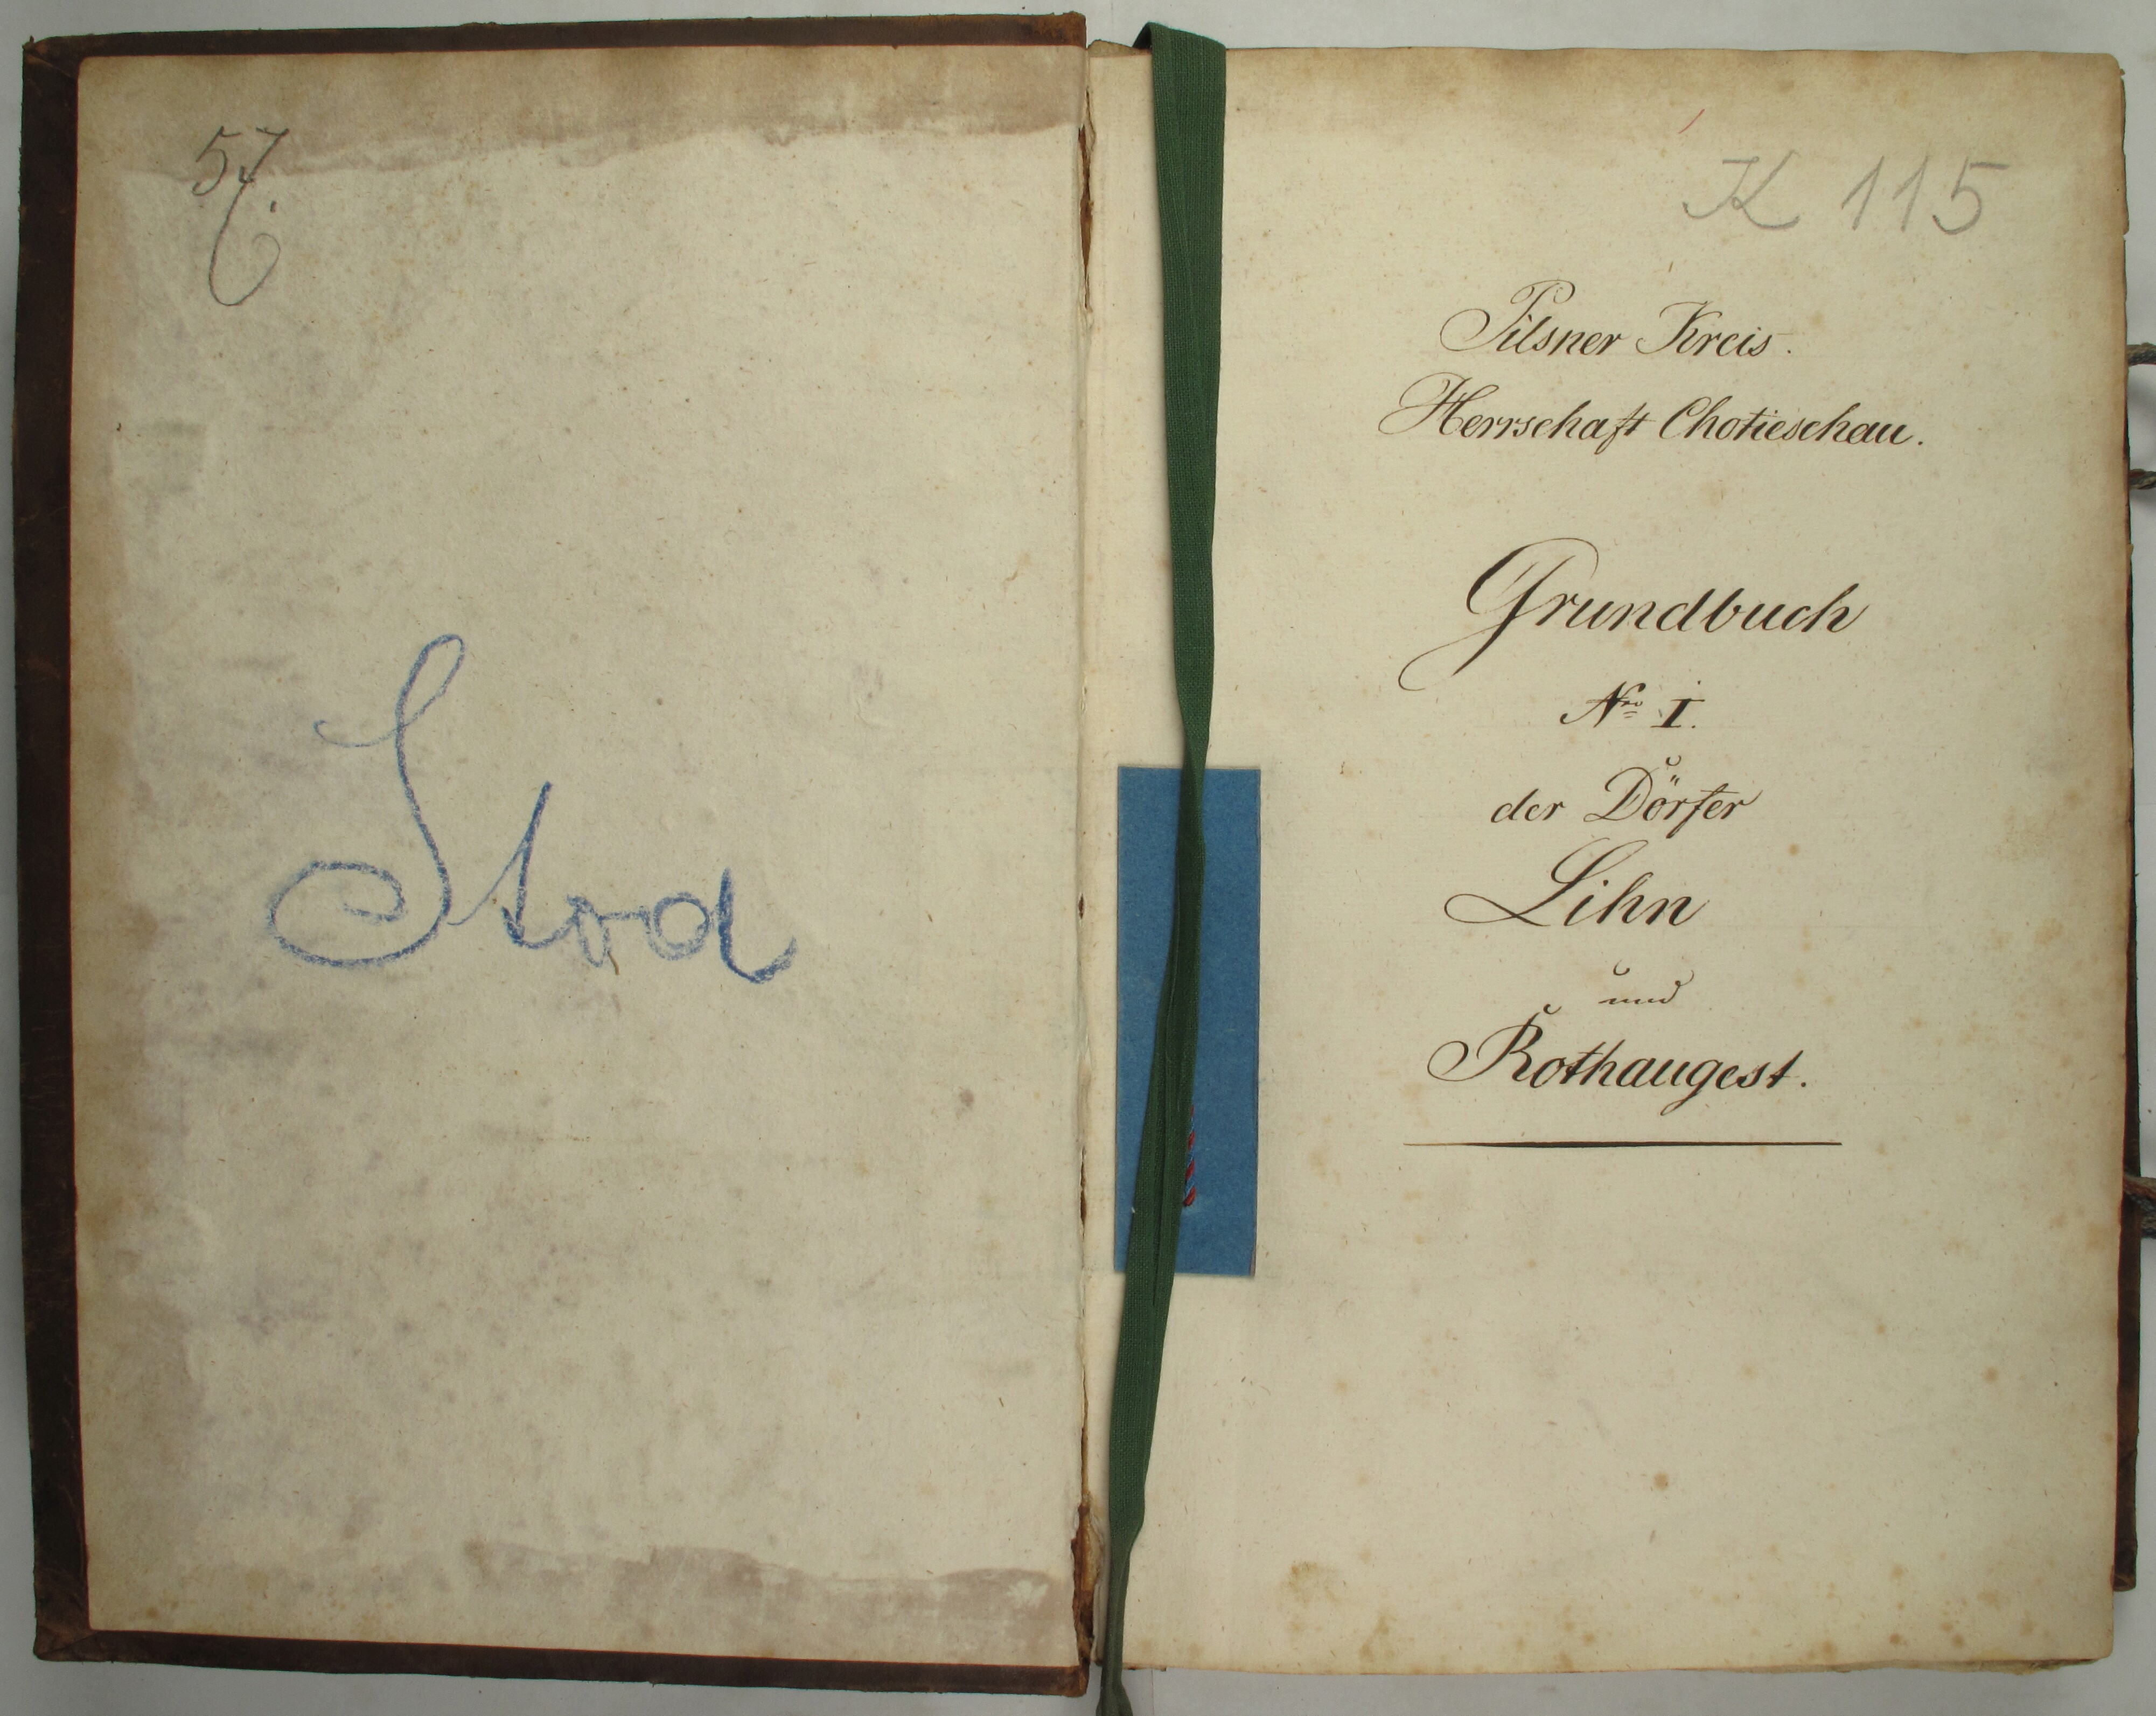 57.
Stod
K 115
Pilsner Kreis.
Herrschaft Chotieschau.
Grundbuch
Nro I.
der Dörfer
Lihn
und
Rothaugest.